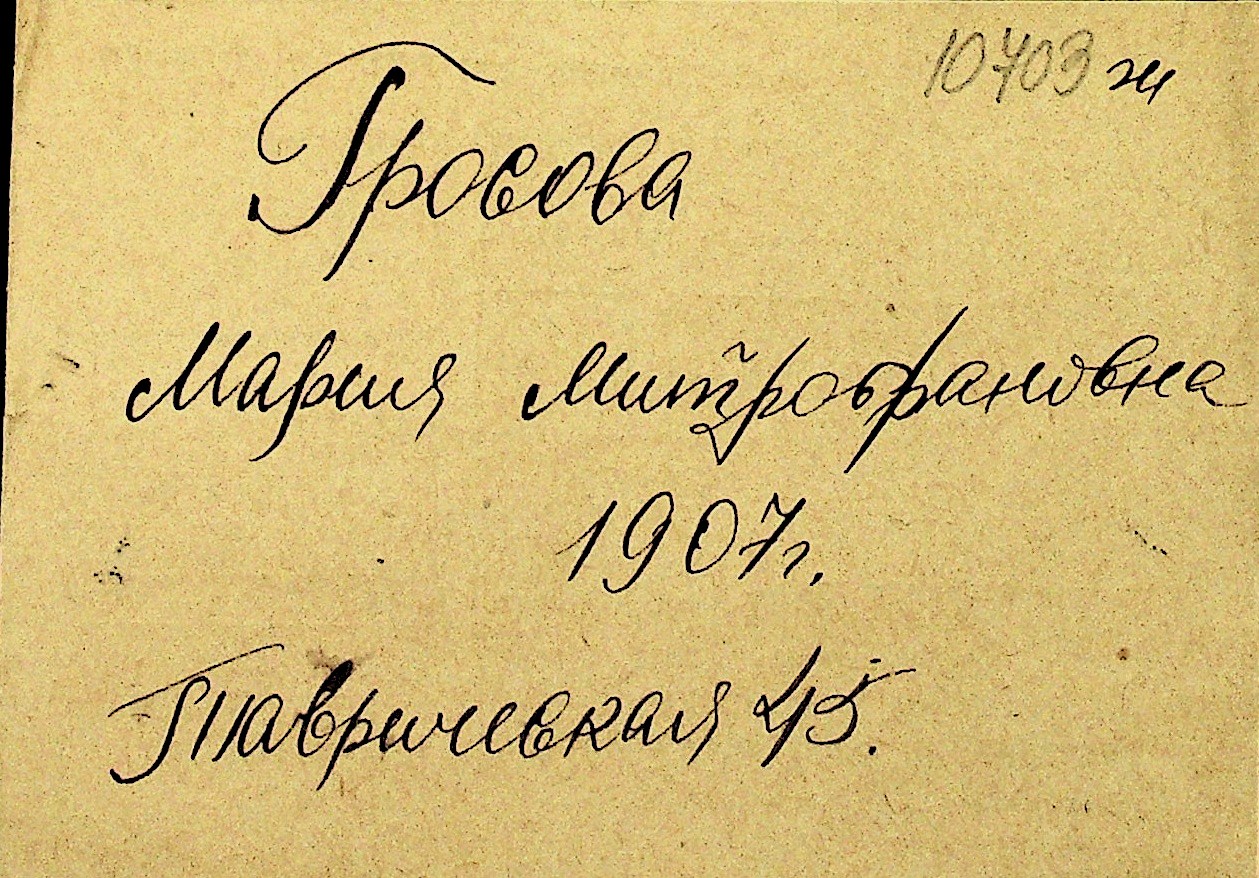 10703 ж
Гросова
Мария Митрофановна
1907г.
Таврическая 45.